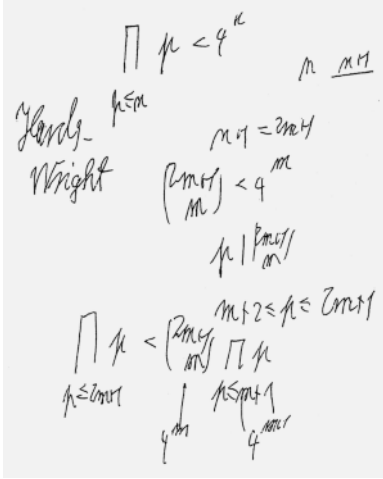 ∏ p < 4ⁿ
p≤n
n n+1
Hardy-
Wright
n+1 = 2m+1
(2m+1 m) < 4ᵐ
p | (2m+1 m)
m+2 ≤ p ≤ 2m+1
∏ p < (2m+1 m) ∏ p
p≤2m+1 p≤m+1
4ᵐ 4ᵐ⁺¹